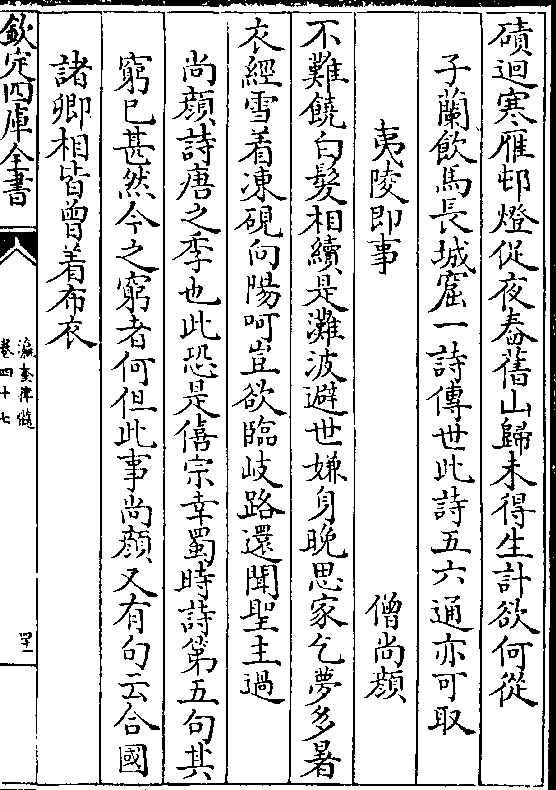 磧迴寒雁邨燈促夜舂舊山歸未得生計欲何從
子蘭飲馬長城窟一詩傳世此詩五六通亦可取
夷陵即事　僧尚顏
不難饒白髮相續是灘波避世嫌身晚思家乞夢多暑
衣經雪着凍硯向陽呵豈欲臨岐路還聞聖主過
尚顏詩唐之季也此恐是僖宗幸蜀時詩第五句其
窮已甚然今之窮者何但此事尚顏又有句云合國
諸卿相皆曾着布衣
欽定四庫全書
瀛奎律髓
卷四十七